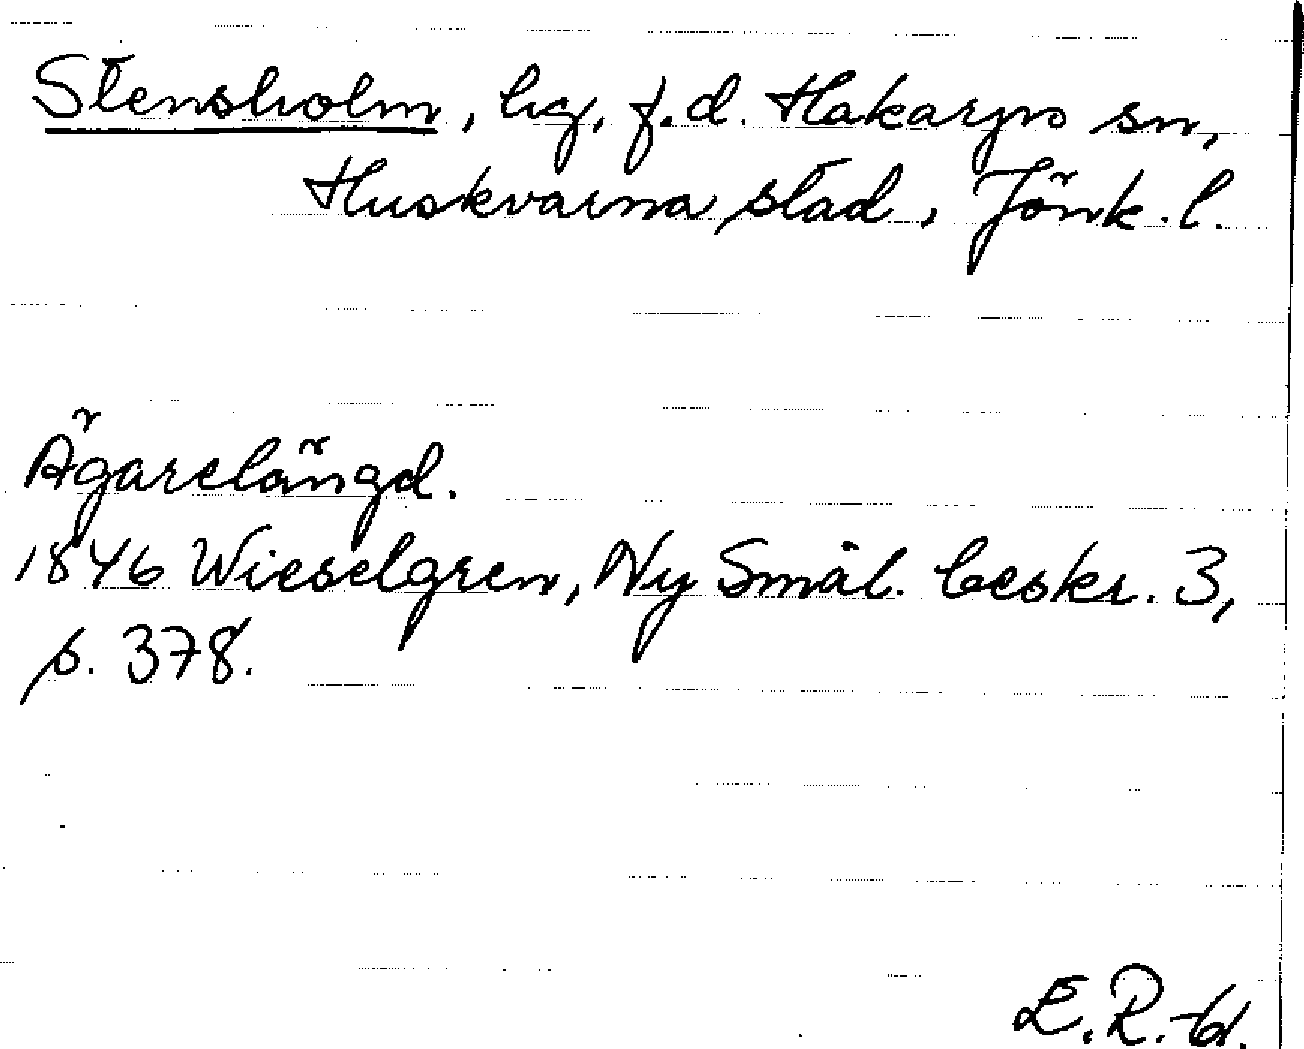 Stensholm, hg, f.d. Hakarps sn,
Huskvarna stad, Jönk. l.
Ägarelängd.
1846 Wieselgren, Ny Smål. beskr. 3,
s. 378.
E.R.-61.